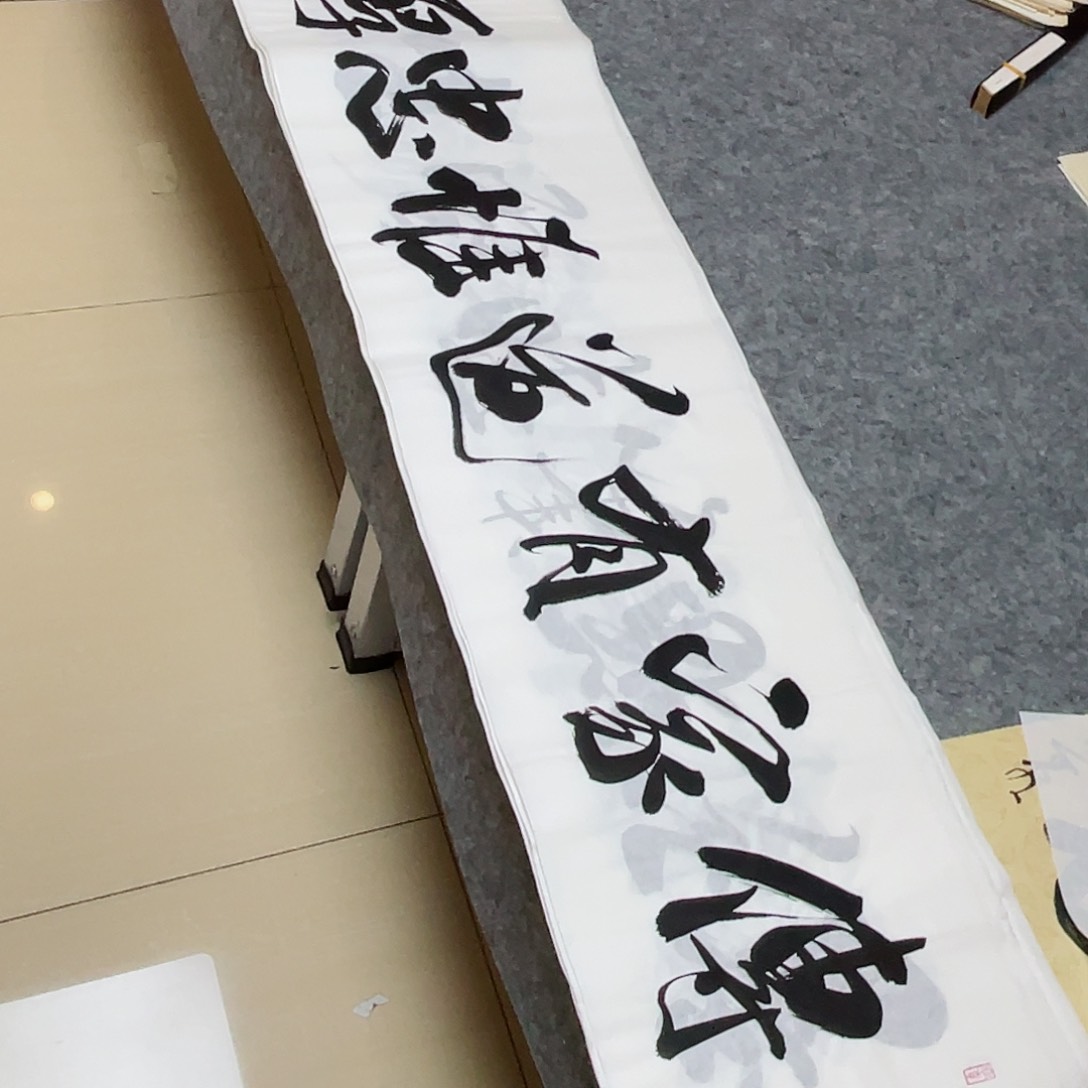 傳家有道惟忠厚